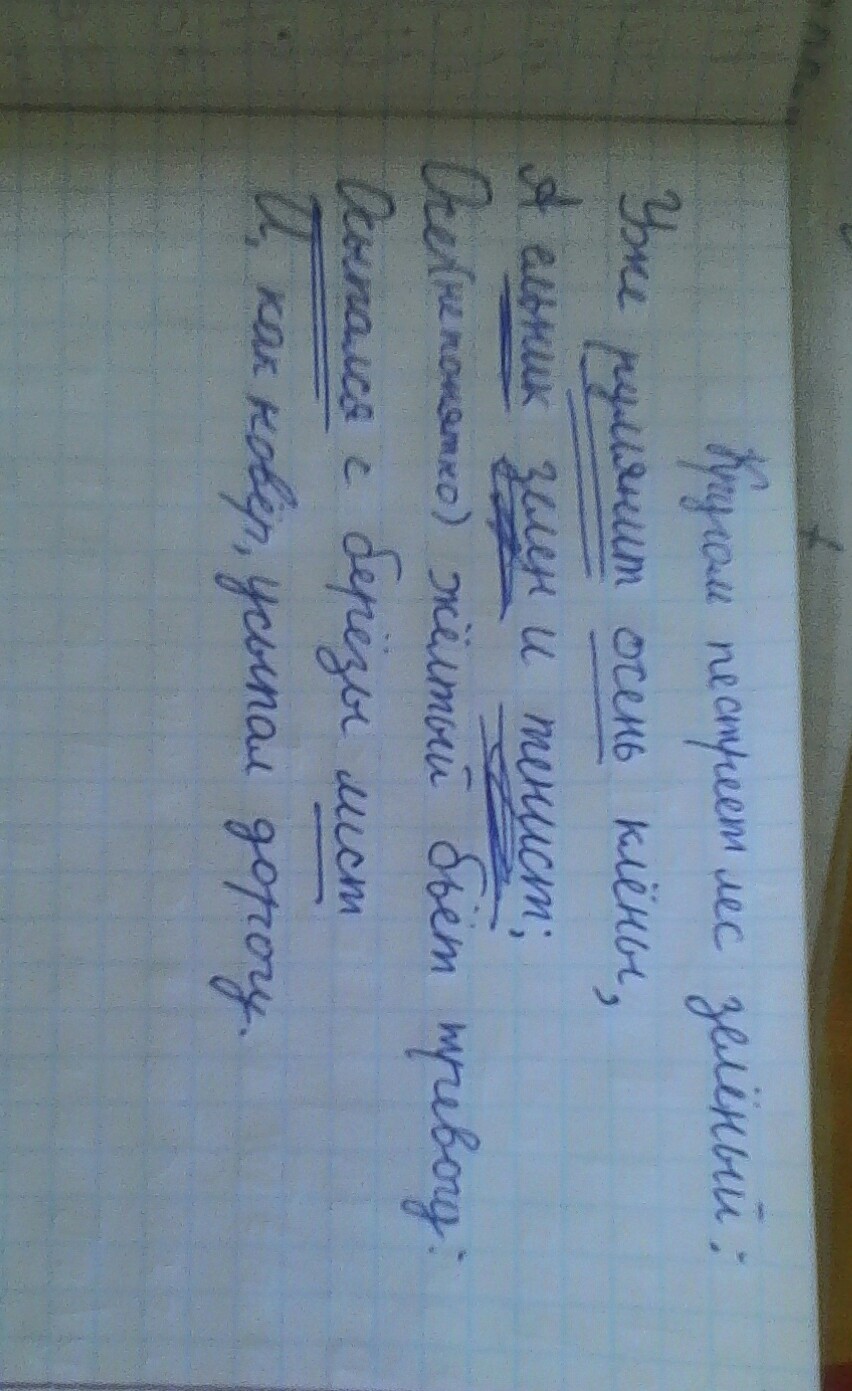 Кругом пестреет лес зелёный:
Уже румянит осень клёны,
А ельник зелен и тенист;
(непонятно) жёлтый бьёт тревогу:
Осыпался с берёзы лист
И, как ковёр, усыпал дорогу.